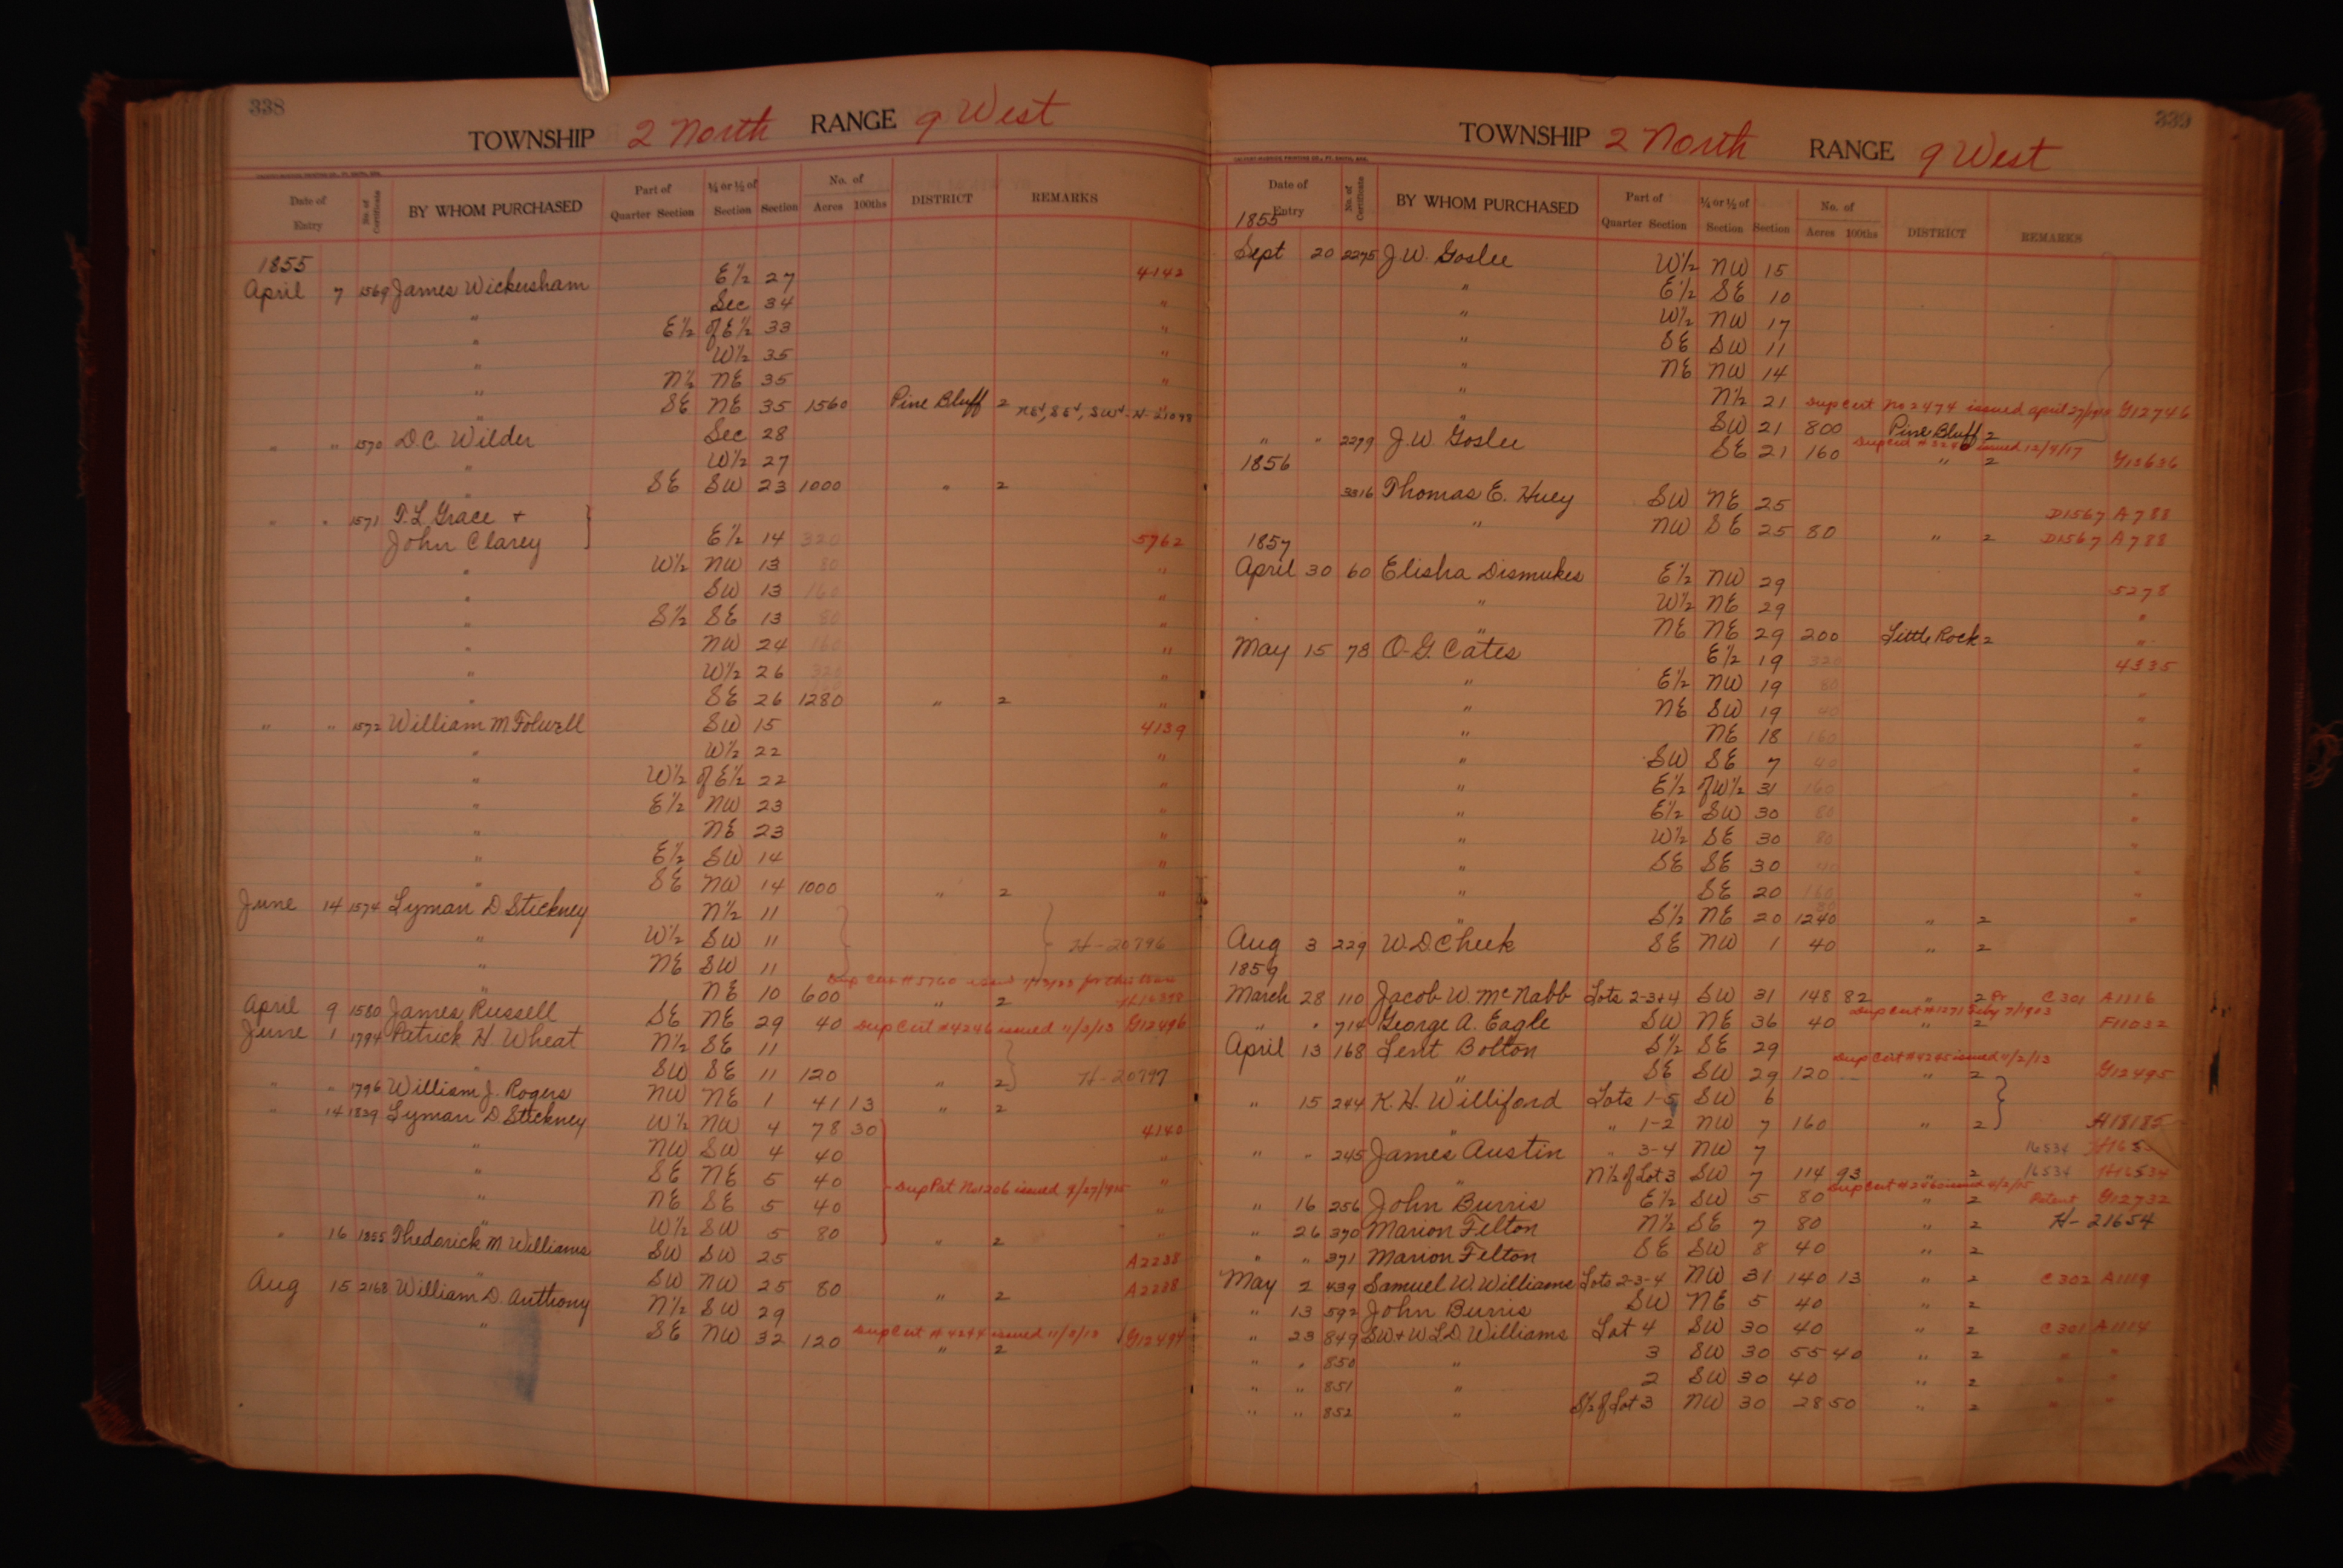 338
TOWNSHIP 2 North RANGE 9 West
Date of Entry No. of Certificate BY WHOM PURCHASED Part of Quarter Section ¼ or ½ of Section Section No. of Acres 100ths DISTRICT REMARKS
1855
April 7 1569 James Wickersham E½ 27 4142
" Sec 34 "
" E½ of E½ 33 "
" W½ 35 "
" N½ NE 35 "
" SE NE 35 1560 Pine Bluff 2
" " 1570 D.C. Wilder Sec 28
" W½ 27
" SE SW 23 1000 " 2
" " 1571 T.L. Grace +
John Clarey E½ 14 320 5762
" W½ NW 13 80 "
" SW 13 160 "
" S½ SE 13 80 "
" NW 24 160 "
" W½ 26 320 "
" SE 26 1280 " 2 "
" " 1572 William M Folwell SW 15 4139
" W½ 22 "
" W½ of E½ 22 "
" E½ NW 23 "
" NE 23 "
" E½ SW 14 "
" SE NW 14 1000 " 2 "
June 14 1574 Lyman D. Stickney N½ 11
" W½ SW 11 H-20796
" NE SW 11
" NE 10 600 " 2
April 9 1580 James Russell SE NE 29 40 Dup Cert #4246 issued 11/2/13 G12496
June 1 1794 Patrick H. Wheat N½ SE 11
" SW SE 11 120 " 2 H-20797
" " 1796 William J. Rogers NW NE 1 41 13 " 2
" 14 1829 Lyman D. Stickney W½ NW 4 78 30 4140
" NW SW 4 40 "
" SE NE 5 40 Dup Pat No 1206 issued "
" NE SE 5 40 "
" W½ SW 5 80 " 2 "
" 16 1855 Thedorick M Williams SW SW 25 A2238
" SW NW 25 80 " 2 A2238
Aug 15 2168 William D. Anthony N½ SW 29
" SE NW 32 120 Dup Cert #4244 issued 11/2/13 G12494
" 2
339
TOWNSHIP 2 North RANGE 9 West
Date of Entry No. of Certificate BY WHOM PURCHASED Part of Quarter Section ¼ or ½ of Section Section No. of Acres 100ths DISTRICT REMARKS
1855
Sept 20 2275 J.W. Goslee W½ NW 15
" E½ SE 10
" W½ NW 17
" SE SW 11
" NE NW 14
" N½ 21 Dup Cert No 2474 issued april G12746
" SW 21 800 Pine Bluff 2
" " 2279 J.W. Goslee SE 21 160 issued 12/4/17 " 2 G13636
1856
3316 Thomas E. Huey SW NE 25 D1567 A788
" NW SE 25 80 " 2 D1567 A788
1857
April 30 60 Elisha Dismukes E½ NW 29 5278
" W½ NE 29 "
" NE NE 29 200 Little Rock 2 "
May 15 78 O.G. Cates E½ 19 320 4335
" E½ NW 19 80 "
" NE SW 19 40 "
" NE 18 160 "
" SW SE 7 40 "
" E½ of W½ 31 160 "
" E½ SW 30 80 "
" W½ SE 30 80 "
" SE SE 30 "
" SE 20 160 "
" S½ NE 20 1240 " 2 "
Aug 3 229 W.D. Cheek SE NW 1 40 " 2
1859
March 28 110 Jacob W. McNabb Lots 2-3+4 SW 31 148 82 " 2 C301 A1116
" " 714 George A. Eagle SW NE 36 40 " 2 F11032
April 13 168 Lent Bolton S½ SE 29
" SE SW 29 120 Dup Cert #4245 issued 11/2/13 " 2 G12495
" 15 244 K.H. Williford Lots 1-5 SW 6
" " 1-2 NW 7 160 " 2 H18185
" " 245 James Austin " 3-4 NW 7 16534
" N½ of Lot 3 SW 7 114 93 " 2 16534 H16534
" 16 256 John Burris E½ SW 5 80 " 2 Patent G12732
" 26 370 Marion Felton N½ SE 7 80 " 2 H-21654
" " 371 Marion Felton SE SW 8 40 " 2
May 2 439 Samuel W. Williams Lots 2-3-4 NW 31 140 13 " 2 C302 A1119
" 13 592 John Burris SW NE 5 40 " 2
" 23 849 SW + W L D Williams Lot 4 SW 30 40 " 2 C301 A1114
" " 850 " 3 SW 30 55 40 " 2 " "
" " 851 " 2 SW 30 40 " 2 " "
" " 852 " S½ of Lot 3 NW 30 28 50 " 2 " "